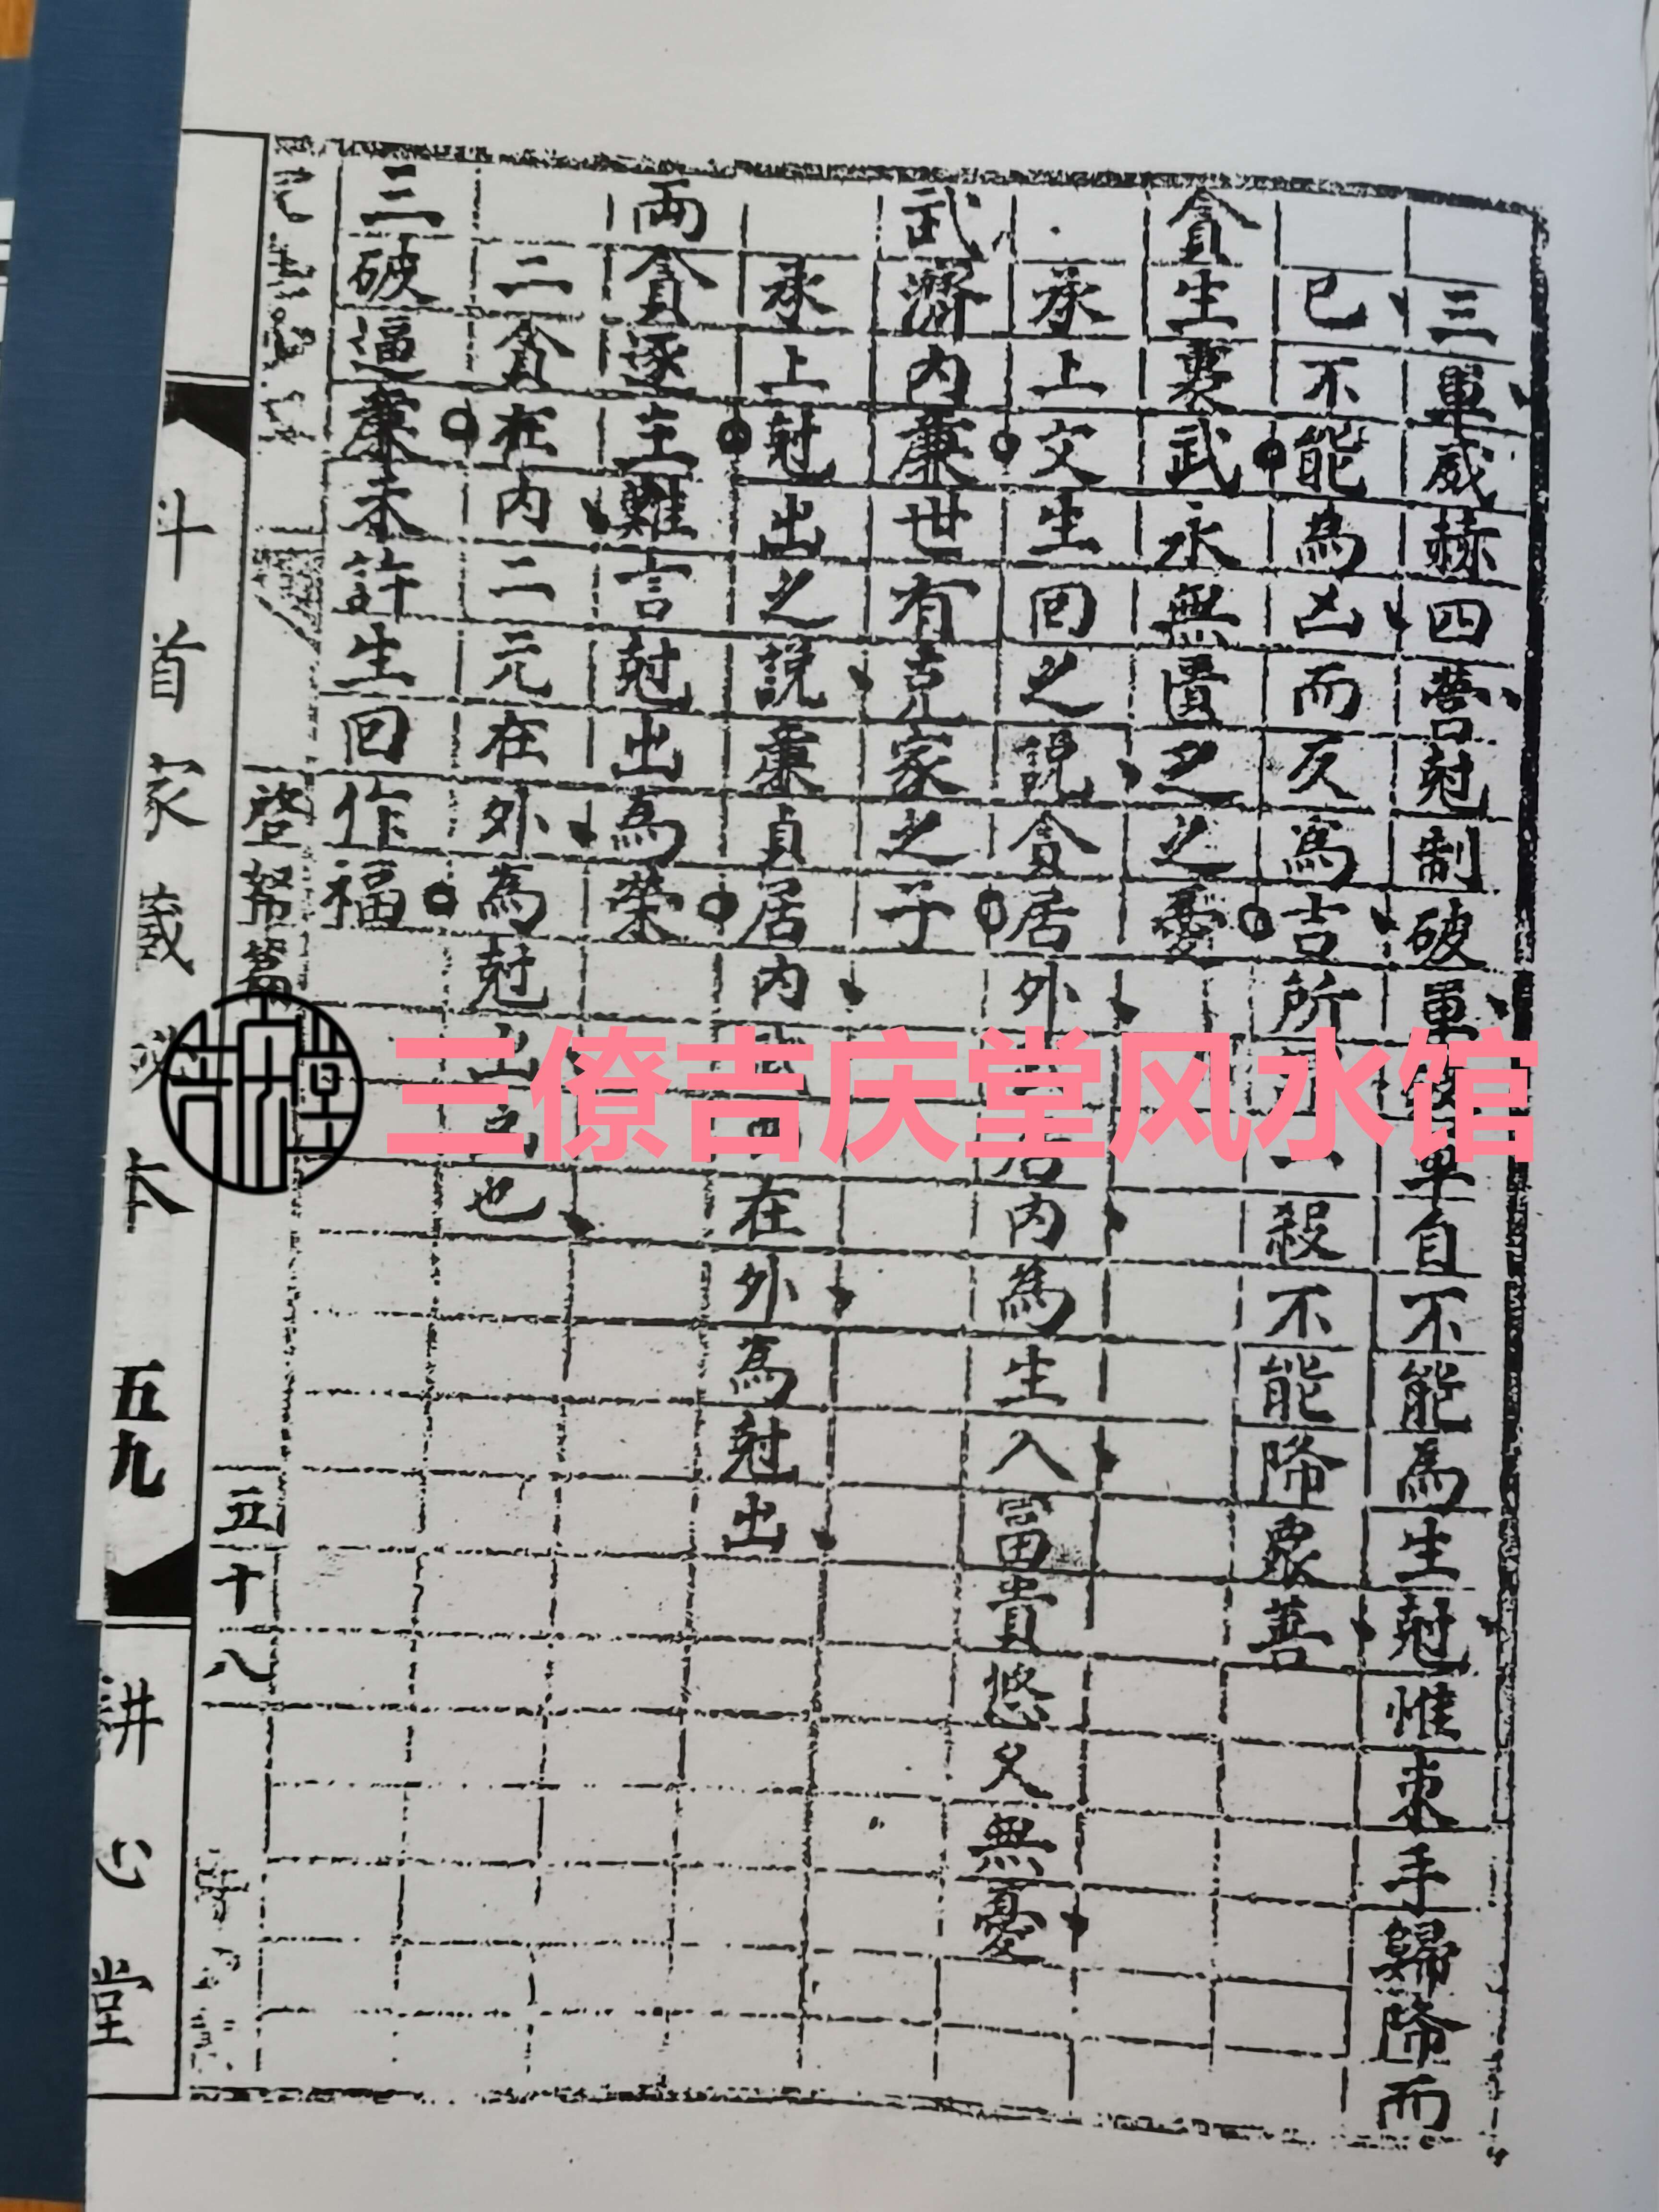 三軍威赫四營尅制破軍破軍自不能為生尅惟束手歸降而
已不能為凶而反為吉所謂一殺不能降衆善
貪生裏武永無匱乏之憂
承上文生回之說貪居外武居內為生入富貴悠久無憂
武濟內廉世有克家之子
承上尅出之說廉貞居內武曲在外為尅出
兩貪逐主難言尅出為榮
二貪在內二元在外為尅出也
三破逼廉未許生回作福
啓幣篇
五十八
斗首家藏 本
五九
耕心堂
三僚吉庆堂风水馆
吉庆堂